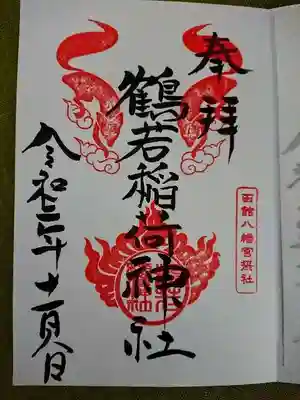 奉拝
函館八幡宮摂社
鶴若稲荷神社
令和二年十一月日